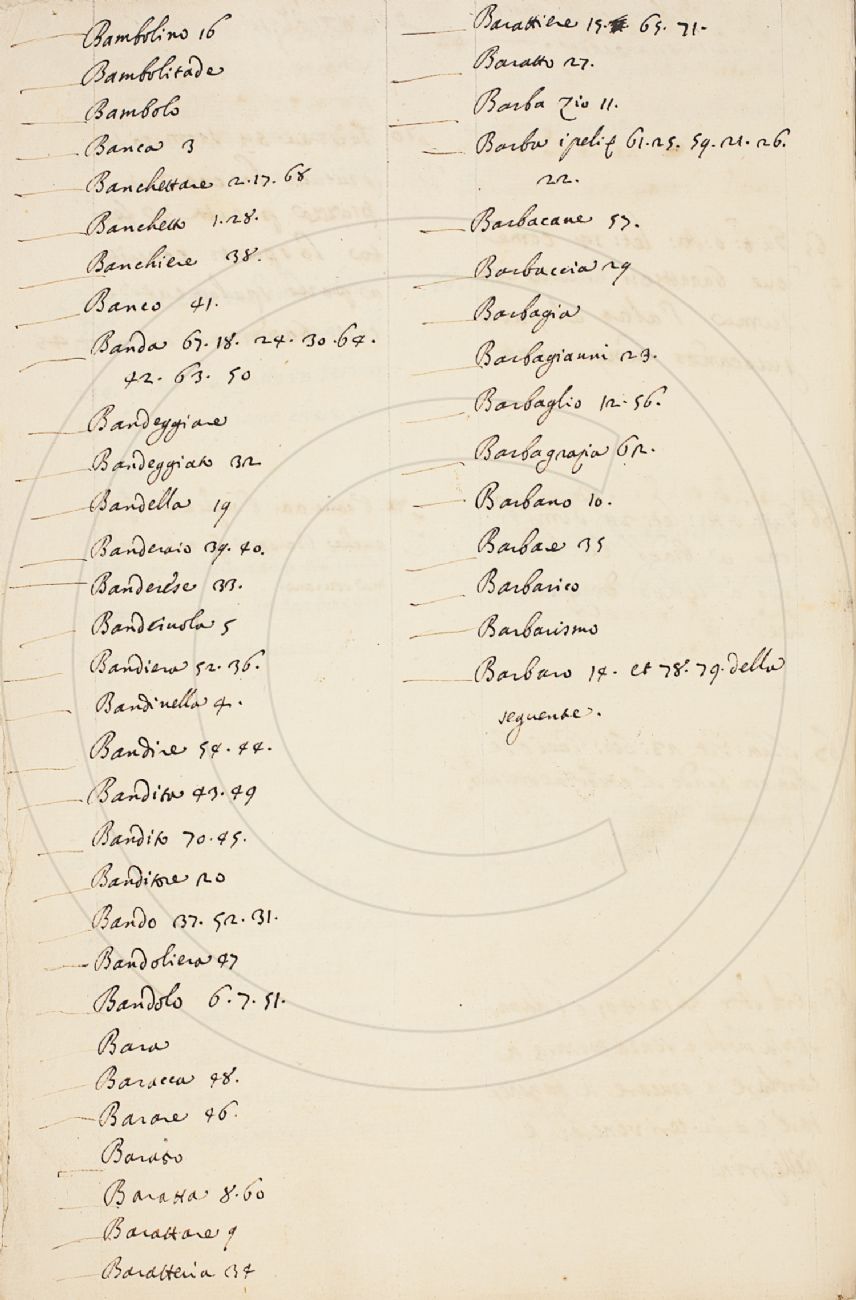 Bambolino 16
Bambolitade
Bambolo
Banca 3
Banchettare 2. 17. 68
Banchetto 1. 28.
Banchiere 38.
Banco 41.
Banda 67. 18. 24. 30. 64.
42. 63. 50
Bandeggiare
Bandeggiato 32
Bandella 19
Banderaio 39. 40.
Banderése 33.
Banderuola 5
Bandiera 52. 36.
Bandinella 4.
Bandire 54. 44.
Bandita 43. 49
Bandito 70. 45.
Banditore 20
Bando 37. 52. 31.
Bandoliera 47
Bandolo 6. 7. 51.
Bara
Baracca 48.
Barare 46.
Barato
Baratta 8. 60
Barattare 9
Baratteria 34
Barattiere 15. 65. 71.
Baratto 27.
Barba Zio 11.
Barba i peli 61. 25. 59. 21. 26.
22.
Barbacane 57.
Barbaccia 29
Barbagia
Barbagianni 23.
Barbaglio 12. 56.
Barbagrazia 62.
Barbano 10.
Barbare 35
Barbarico
Barbarismo
Barbaro 14. et 78. 79. della
seguente.